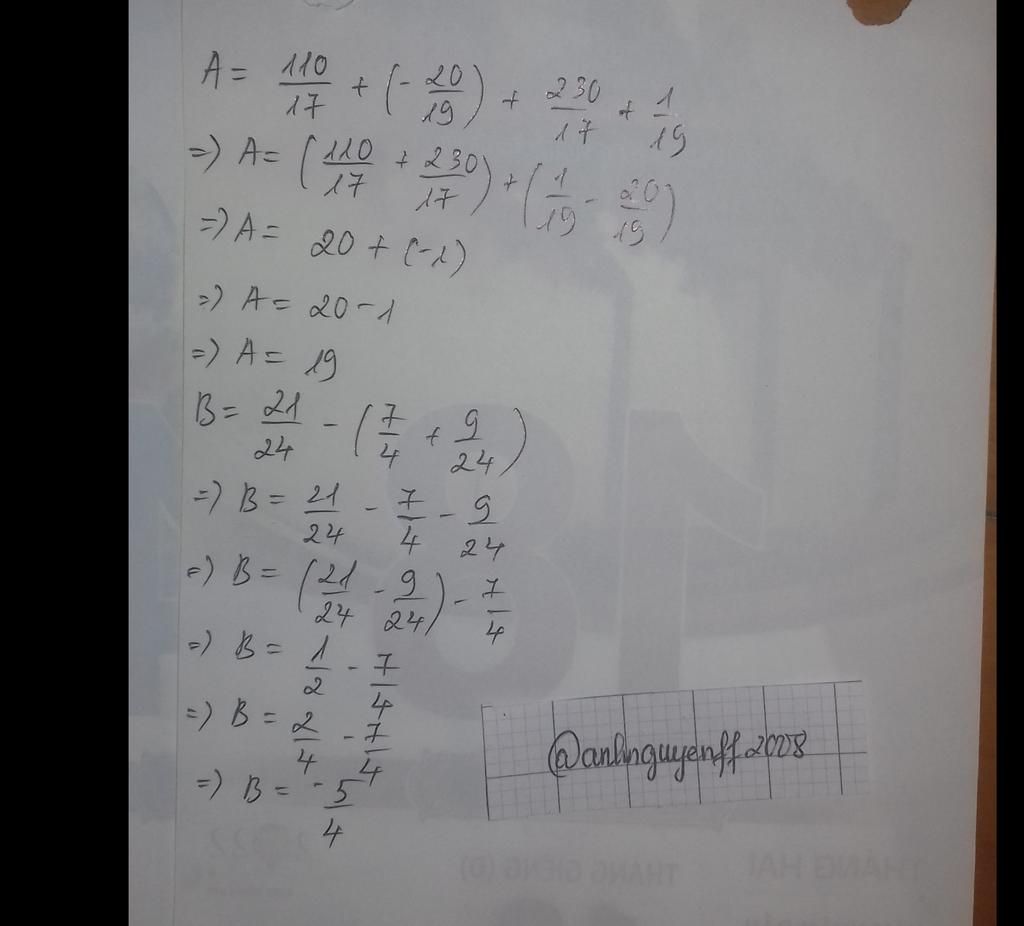 A = 110/17 + (- 20/19) + 230/17 + 1/19
=) A = (110/17 + 230/17) + (1/19 - 20/19)
=) A = 20 + (-1)
=) A = 20 - 1
=) A = 19
B = 21/24 - (7/4 + 9/24)
=) B = 21/24 - 7/4 - 9/24
=) B = (21/24 - 9/24) - 7/4
=) B = 1/2 - 7/4
=) B = 2/4 - 7/4
=) B = -5/4
@anhnguyenff2008
THÁNG GIÊNG (Đ)
THÁNG HAI
2022